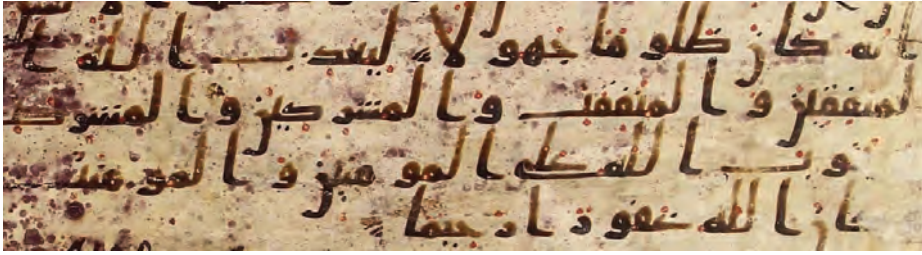 انه كان ظلوما جهولا ليعذب الله ا
لمنفقين والمنفقت والمشركين والمشرك
وب الله على المومنين والمومنت
ان الله غفورا رحيما